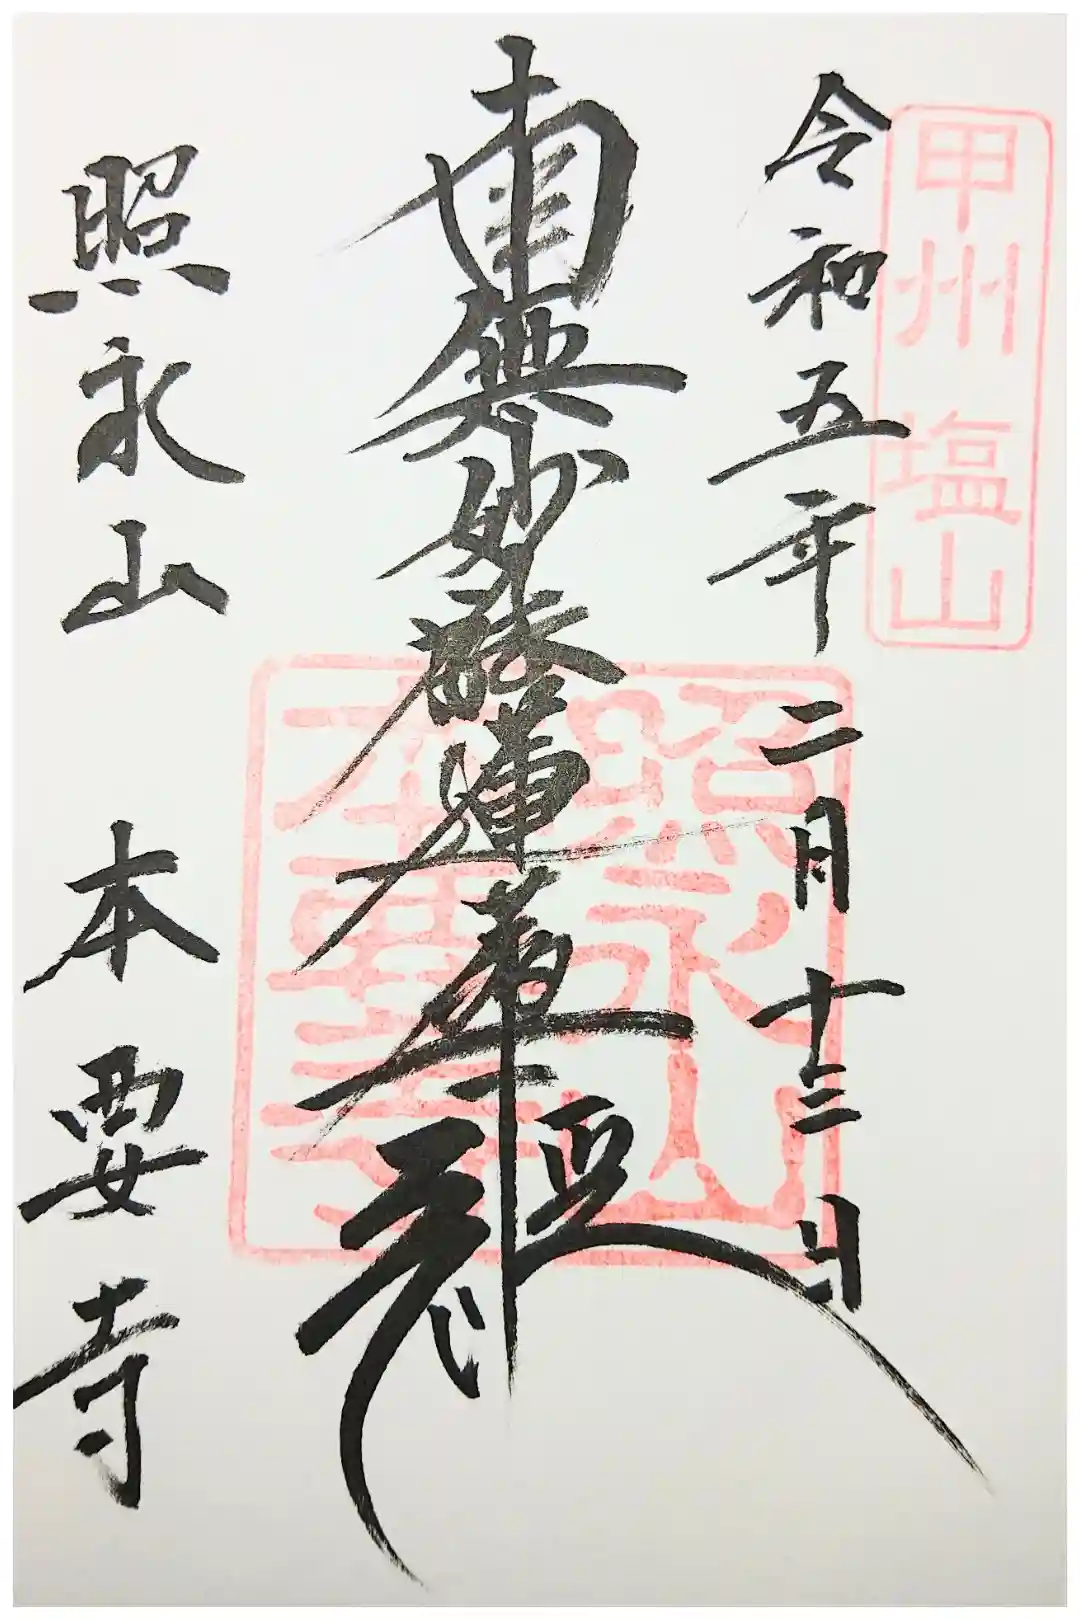 甲州 塩山
令和五年二月十三日
南無妙法蓮華経
照永山
本要寺
照永山 本要寺